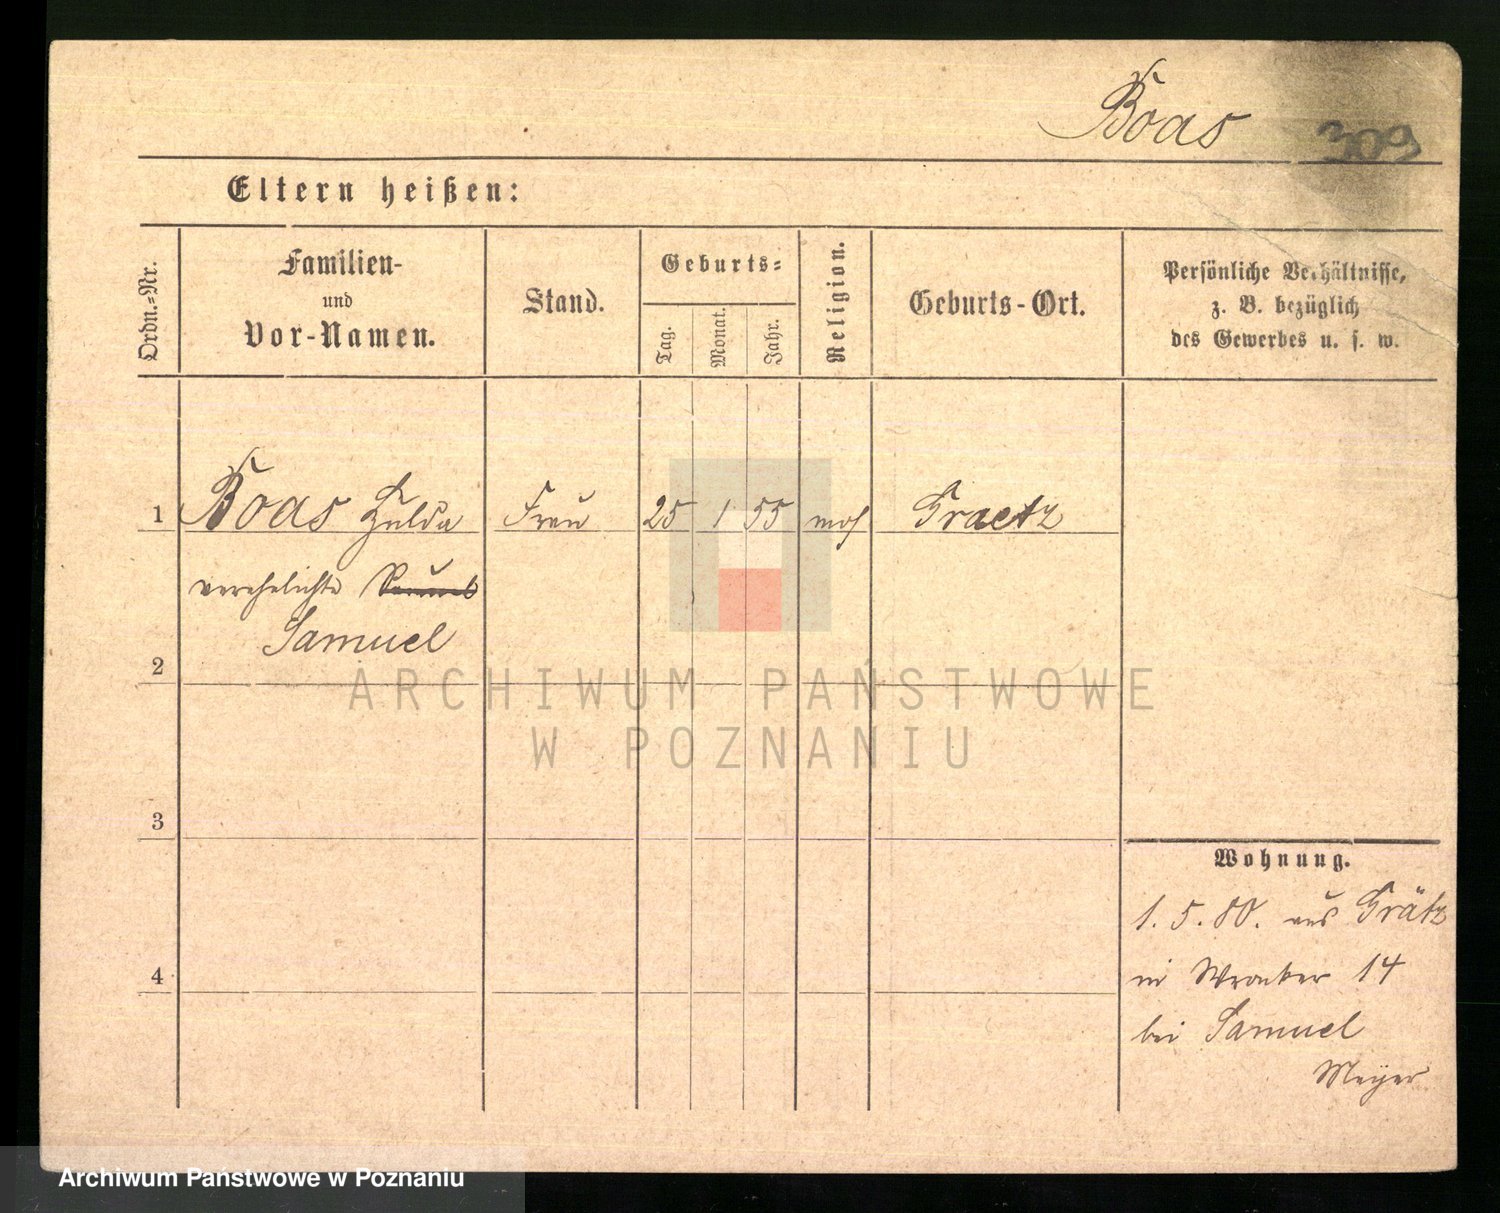 Boas 309
Eltern heißen:
Ordn.-Nr.
Familien-
und
Vor-Namen.
Stand.
Geburts-
Tag.
Monat.
Jahr.
Religion.
Geburts-Ort.
Persönliche Verhältnisse,
z. B. bezüglich
des Gewerbes u. s. w.
1 Boas Hulda Frau 25 1 55 mos Graetz
verehelichte
Samuel
2
ARCHIWUM PAŃSTWOWE
W POZNANIU
3
Wohnung.
1. 5. 80. aus Grätz
in Wronker 14
4
bei Samuel
Meyer
Archiwum Państwowe w Poznaniu